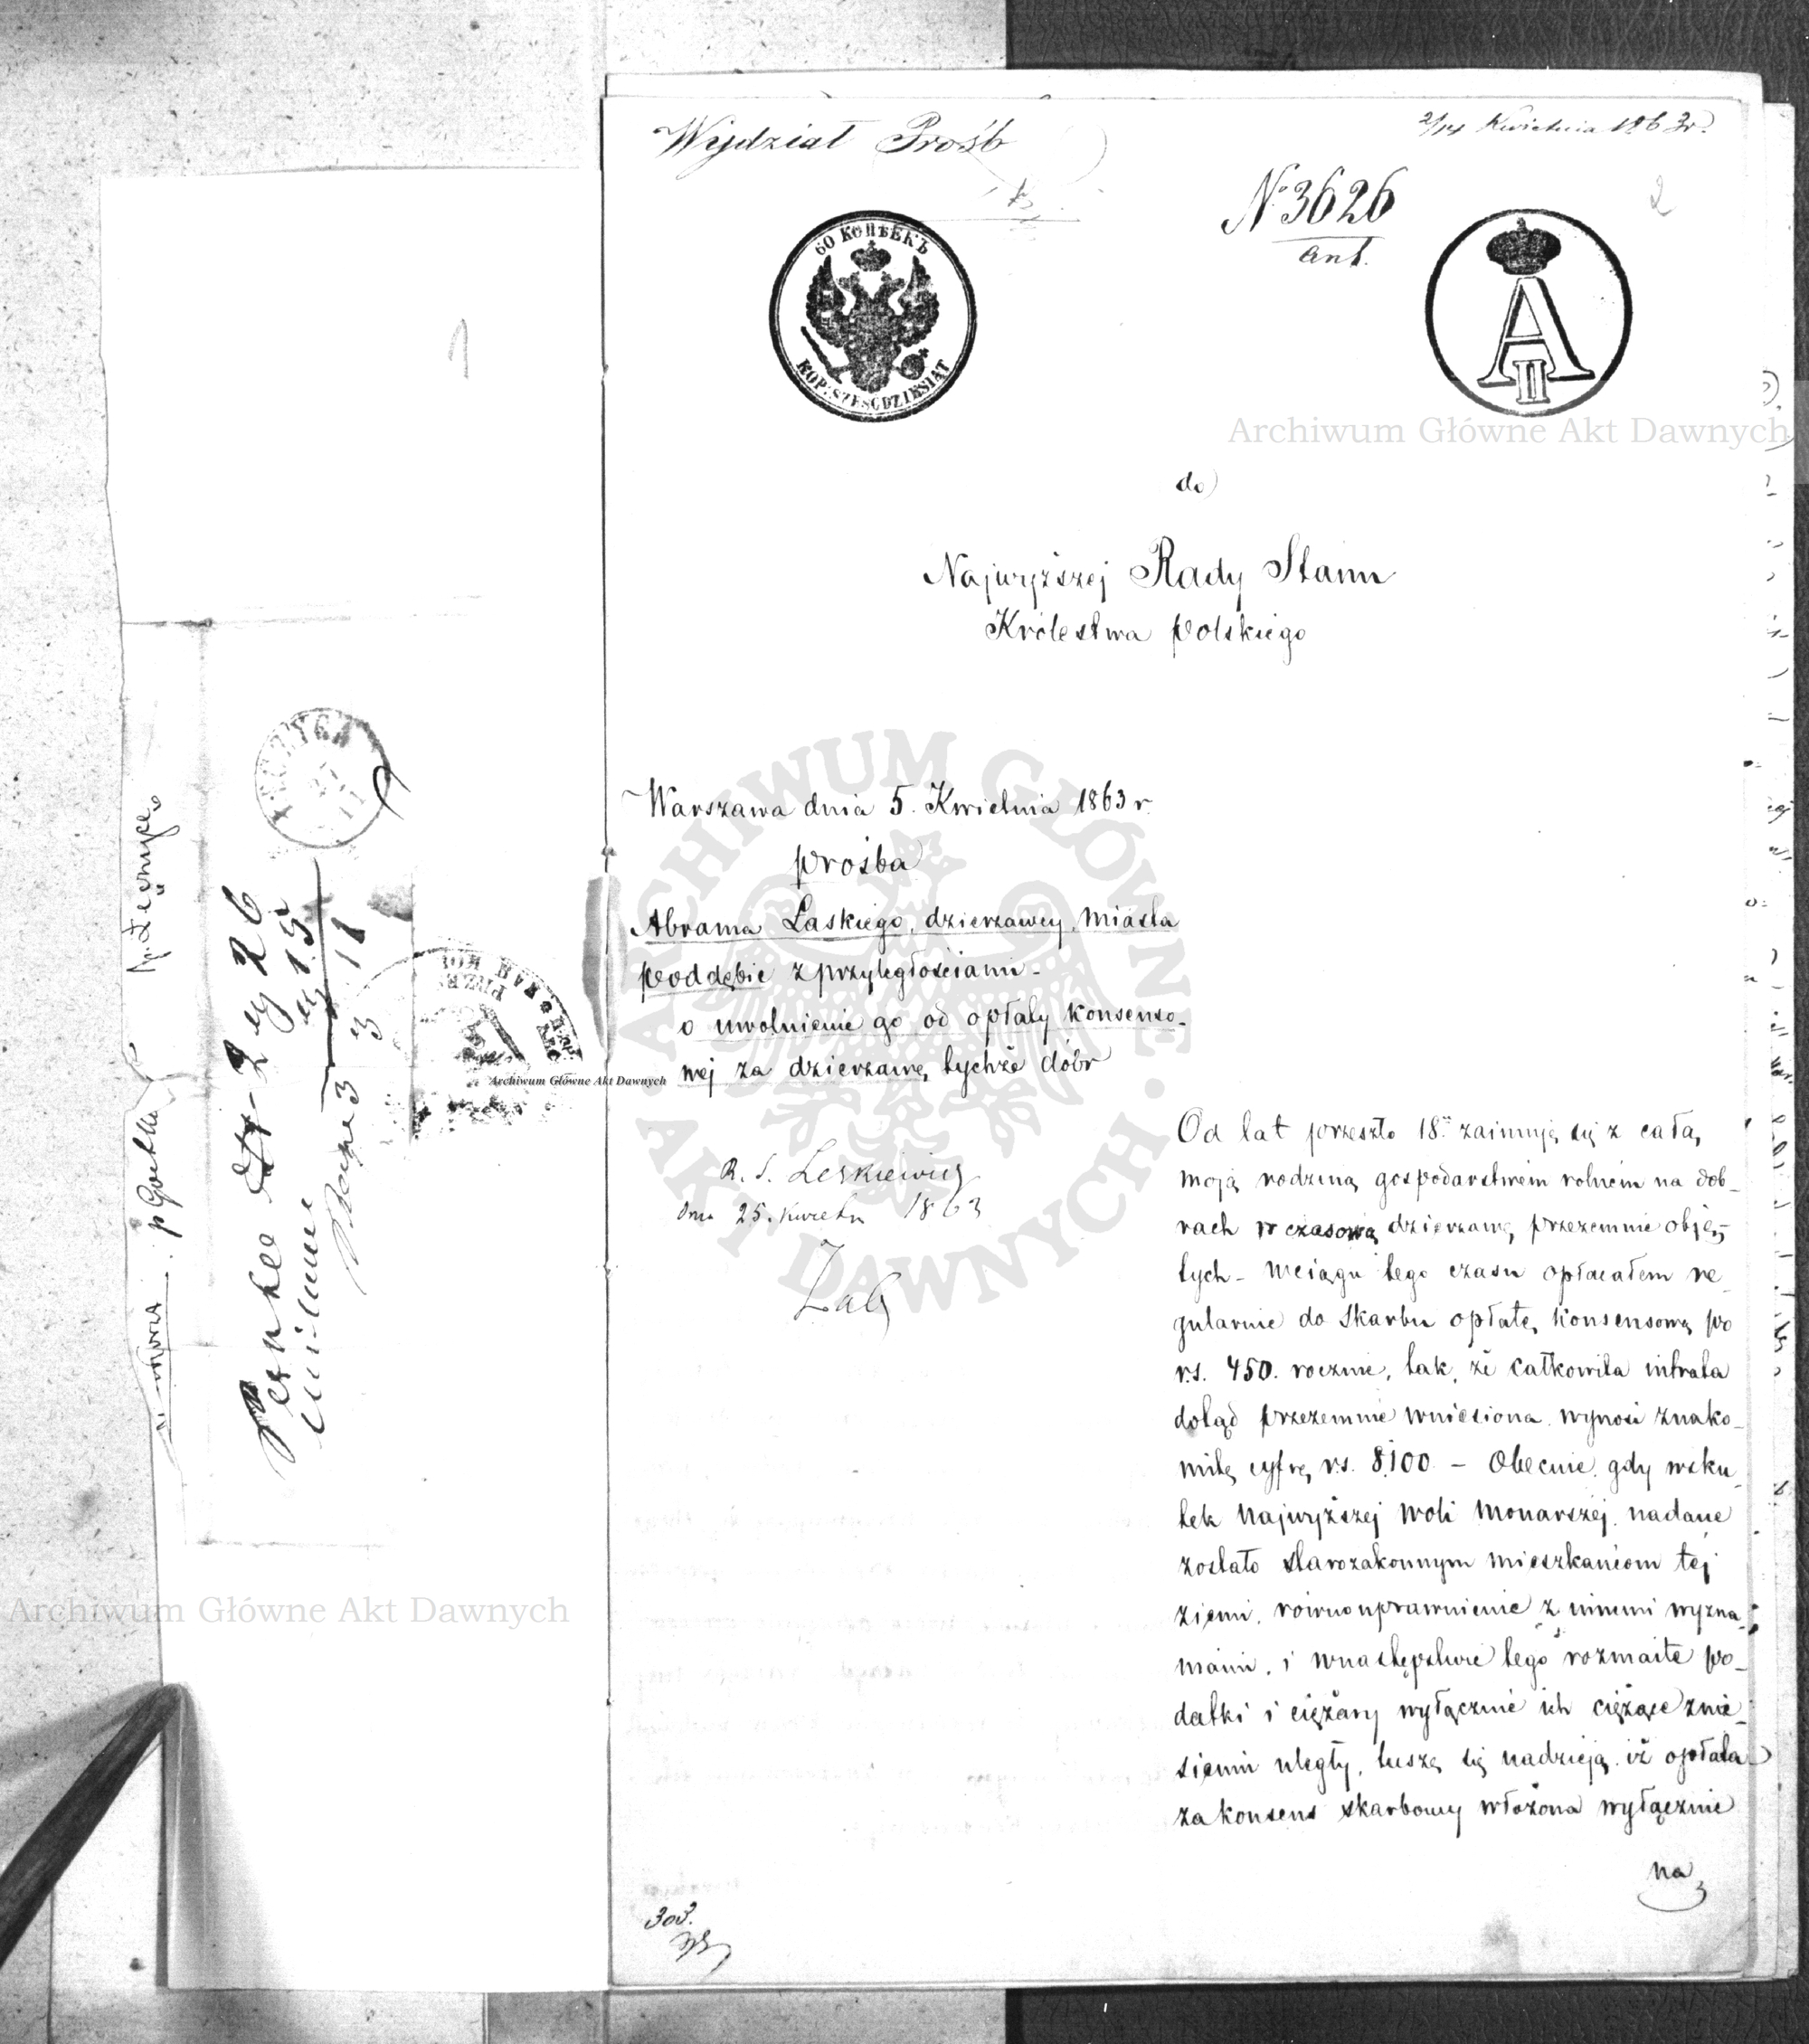 Wydział Prośb
2/14 Kwietnia 1863 r.
N. 3626
Ant.
2
60 КОПѢЕКЪ
KOP: SZESĆDZIESIAT
A
II
Archiwum Główne Akt Dawnych
1
do
Najwyższej Rady Stanu
Królestwa Polskiego
Warszawa dnia 5. Kwietnia 1863 r.
prośba
Abrama Laskiego, dzierzawcy, miasta
Poddębie z przyległościami -
o uwolnienie go od opłaty konsenso-
wej za dzierzawę tychże dóbr
R. S. Leskiewicz
Dnia 25. Kwietn 1863
Od lat przeszło 18tu zaimuję się z całą,
moją rodziną gospodarstwem rolnem na dob-
rach w czasową dzierzawę, przezemnie obję-
tych - wciągu tego czasu opłacałem re
gularnie do Skarbu opłatę, konsensową po
rs. 450. rocznie, tak, że całkowita intrata
dotąd przezemnie wniesiona wynosi znako-
mitą cyfrę, rs. 8,100. - Obecnie, gdy wsku-
tek Najwyższej woli Monarszej, nadane
zostało starozakonnym mieszkańcom tej
ziemi, rownouprawnienie z innemi wyzna-
niami, i wnastępstwie tego rozmaite po-
datki i ciężary wyłącznie ich ciężące znie-
sieniu uległy, tuszę się nadzieją, iż opłata
za konsens skarbowy włożona wyłącznie
na
303.
Archiwum Główne Akt Dawnych
Archiwum Główne Akt Dawnych
ARCHIWUM GŁÓWNE
AKT DAWNYCH